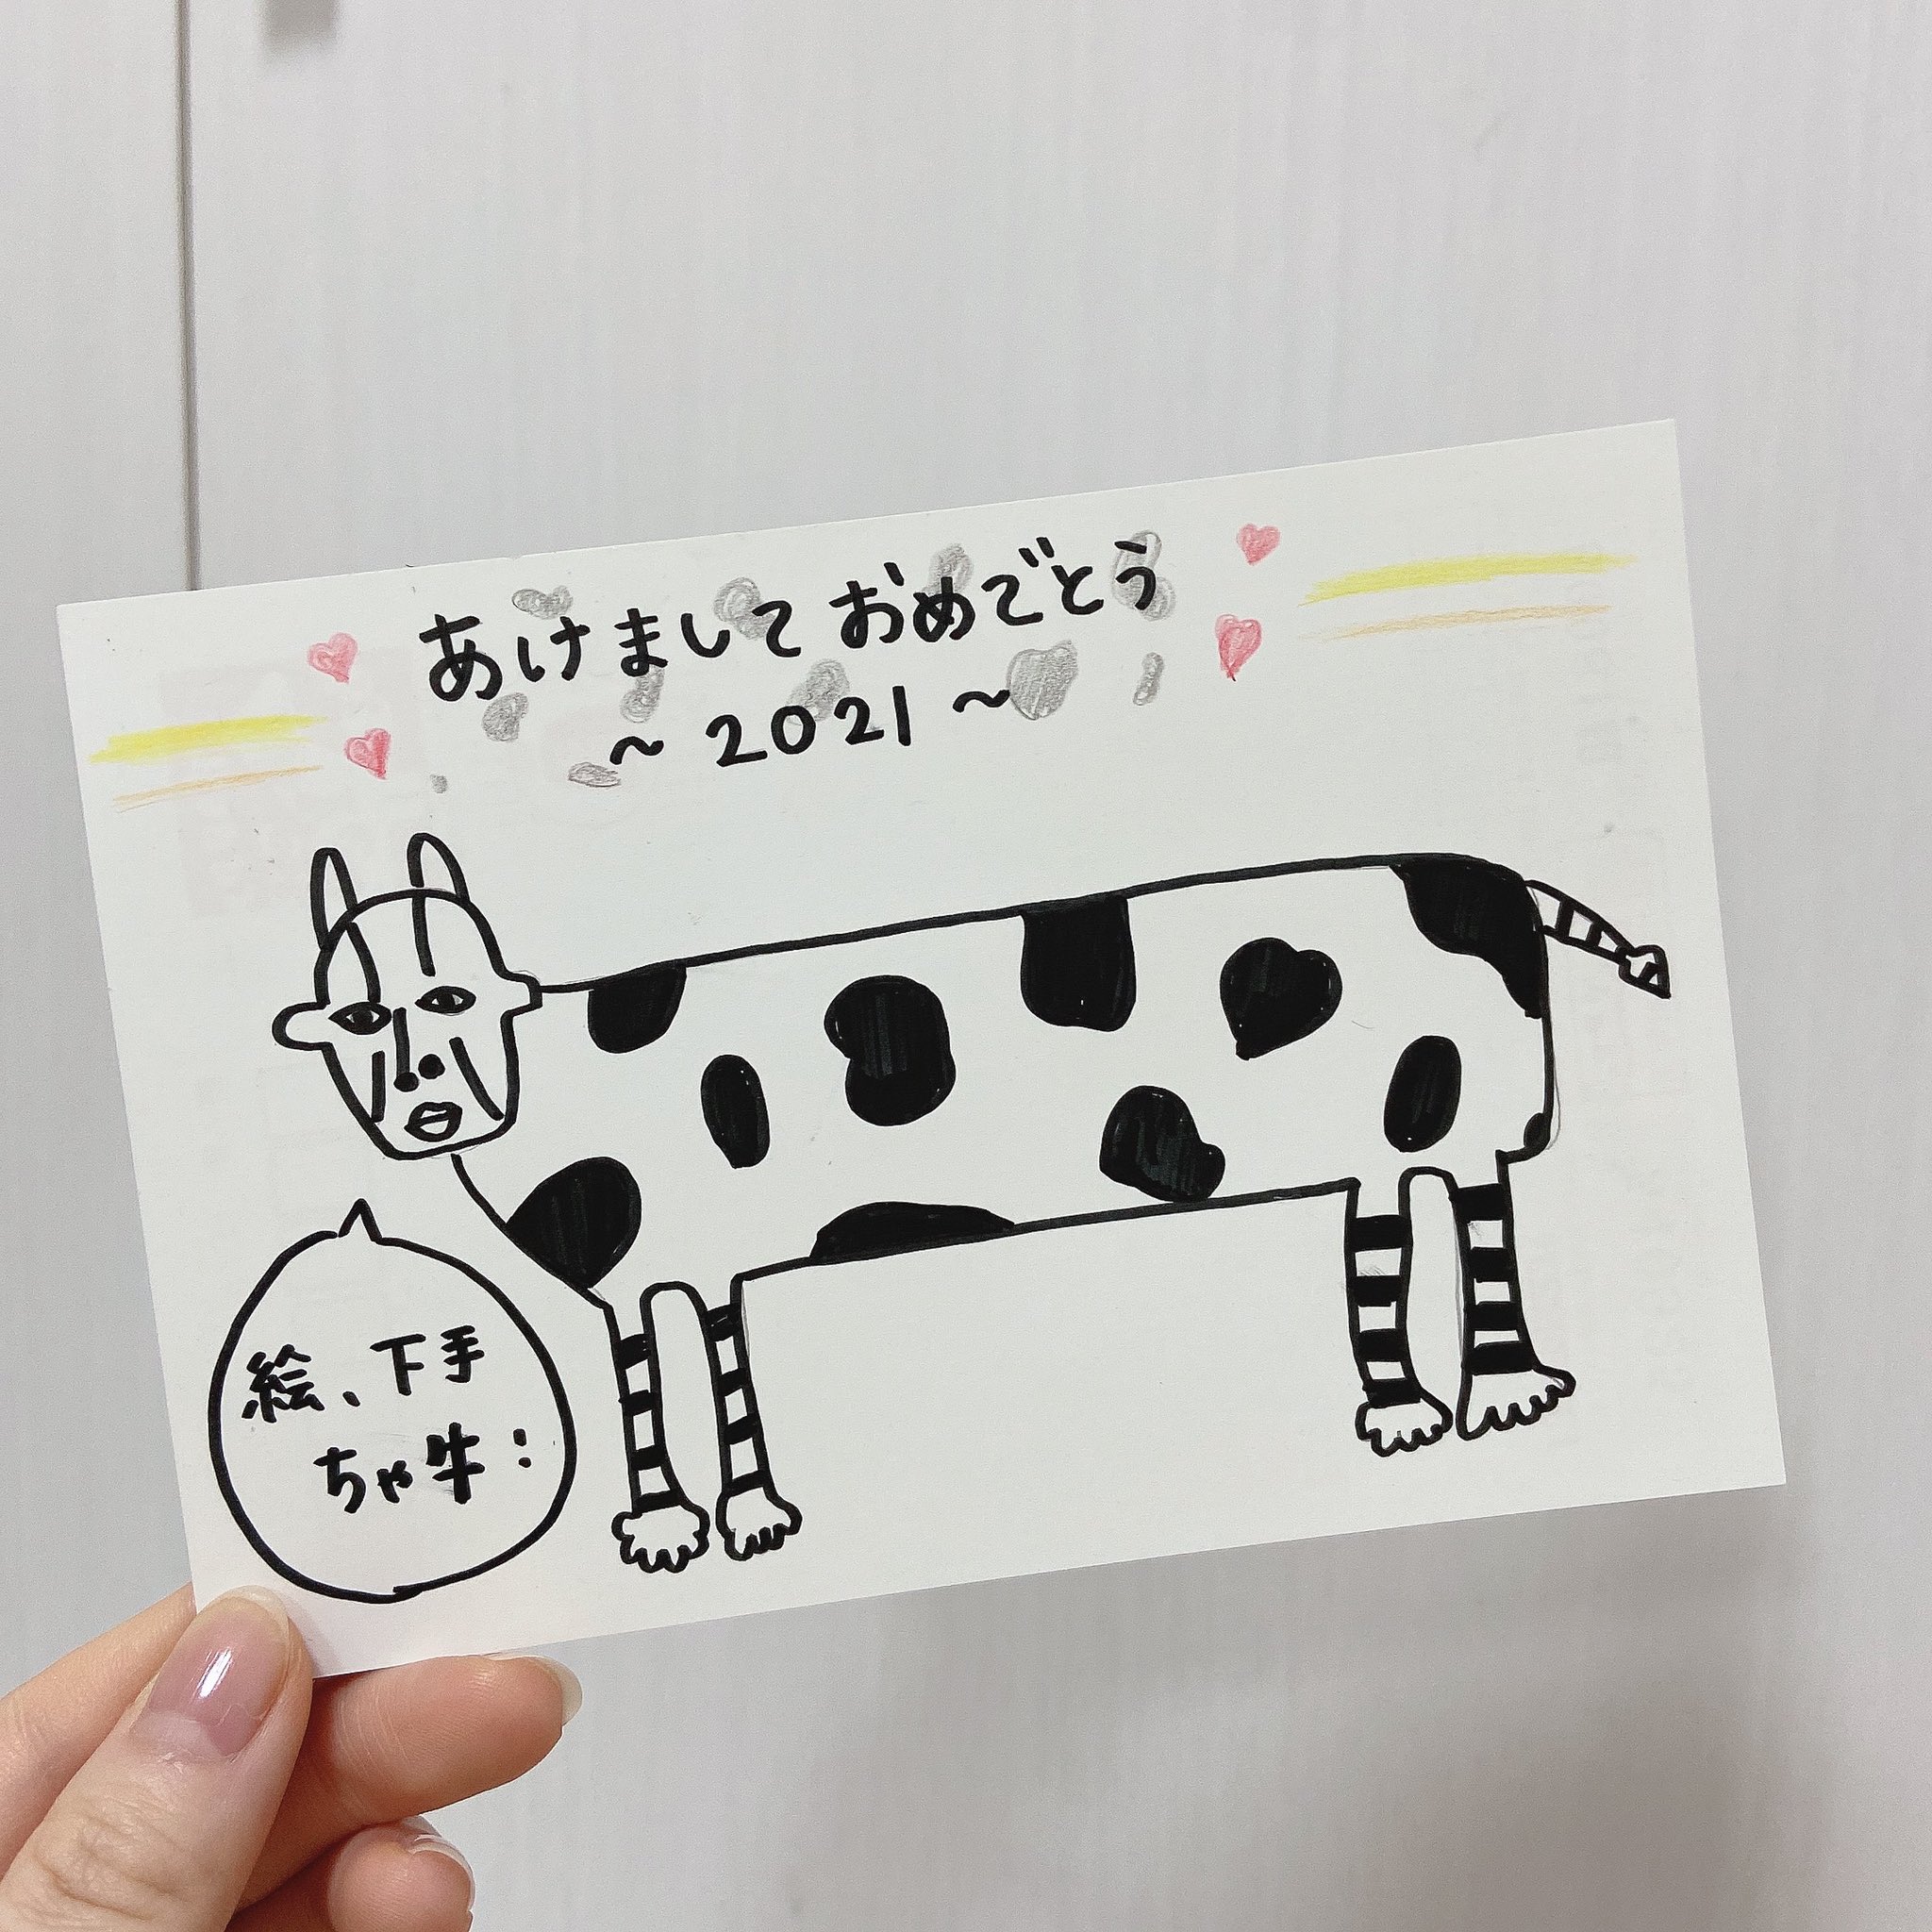 あけましておめでとう
~ 2021 ~
絵、下手
ちゃ牛: